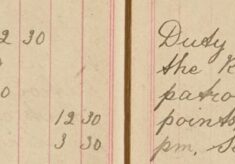 2 30
0
12 30
3 30
Duty
the
patro
points
pm.